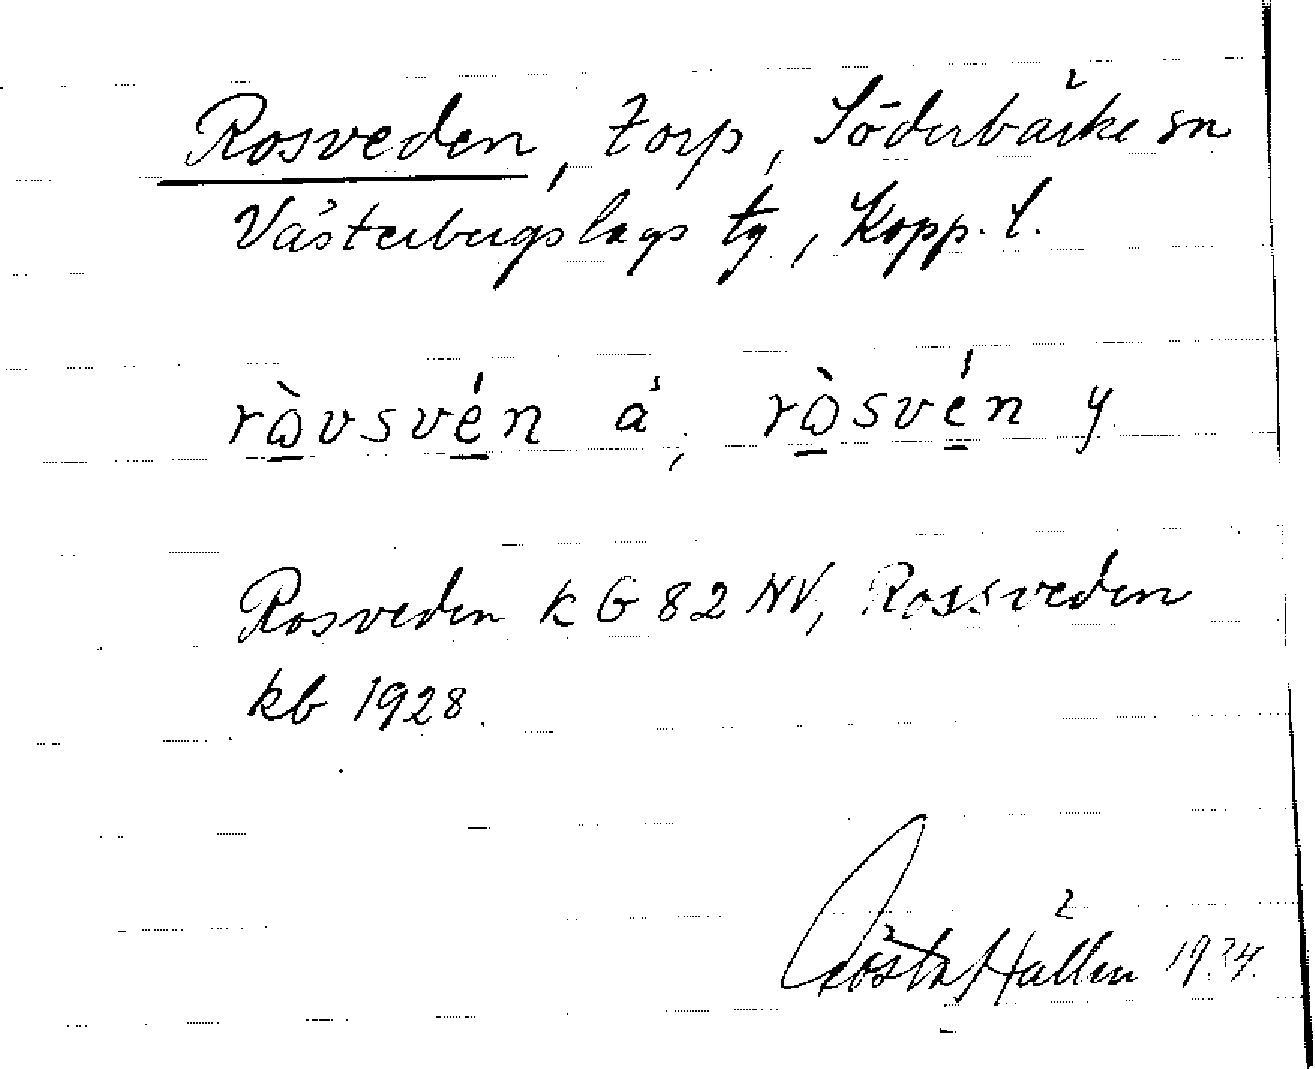 Rosveden, torp, Söderbärke sn
Västerbergslags tg, Kopp. l.
ròvsvén ä, ròsvén y
Rosveden k G 82 NV, Rossveden
kb 1928.
Gösta Hallén 1934.